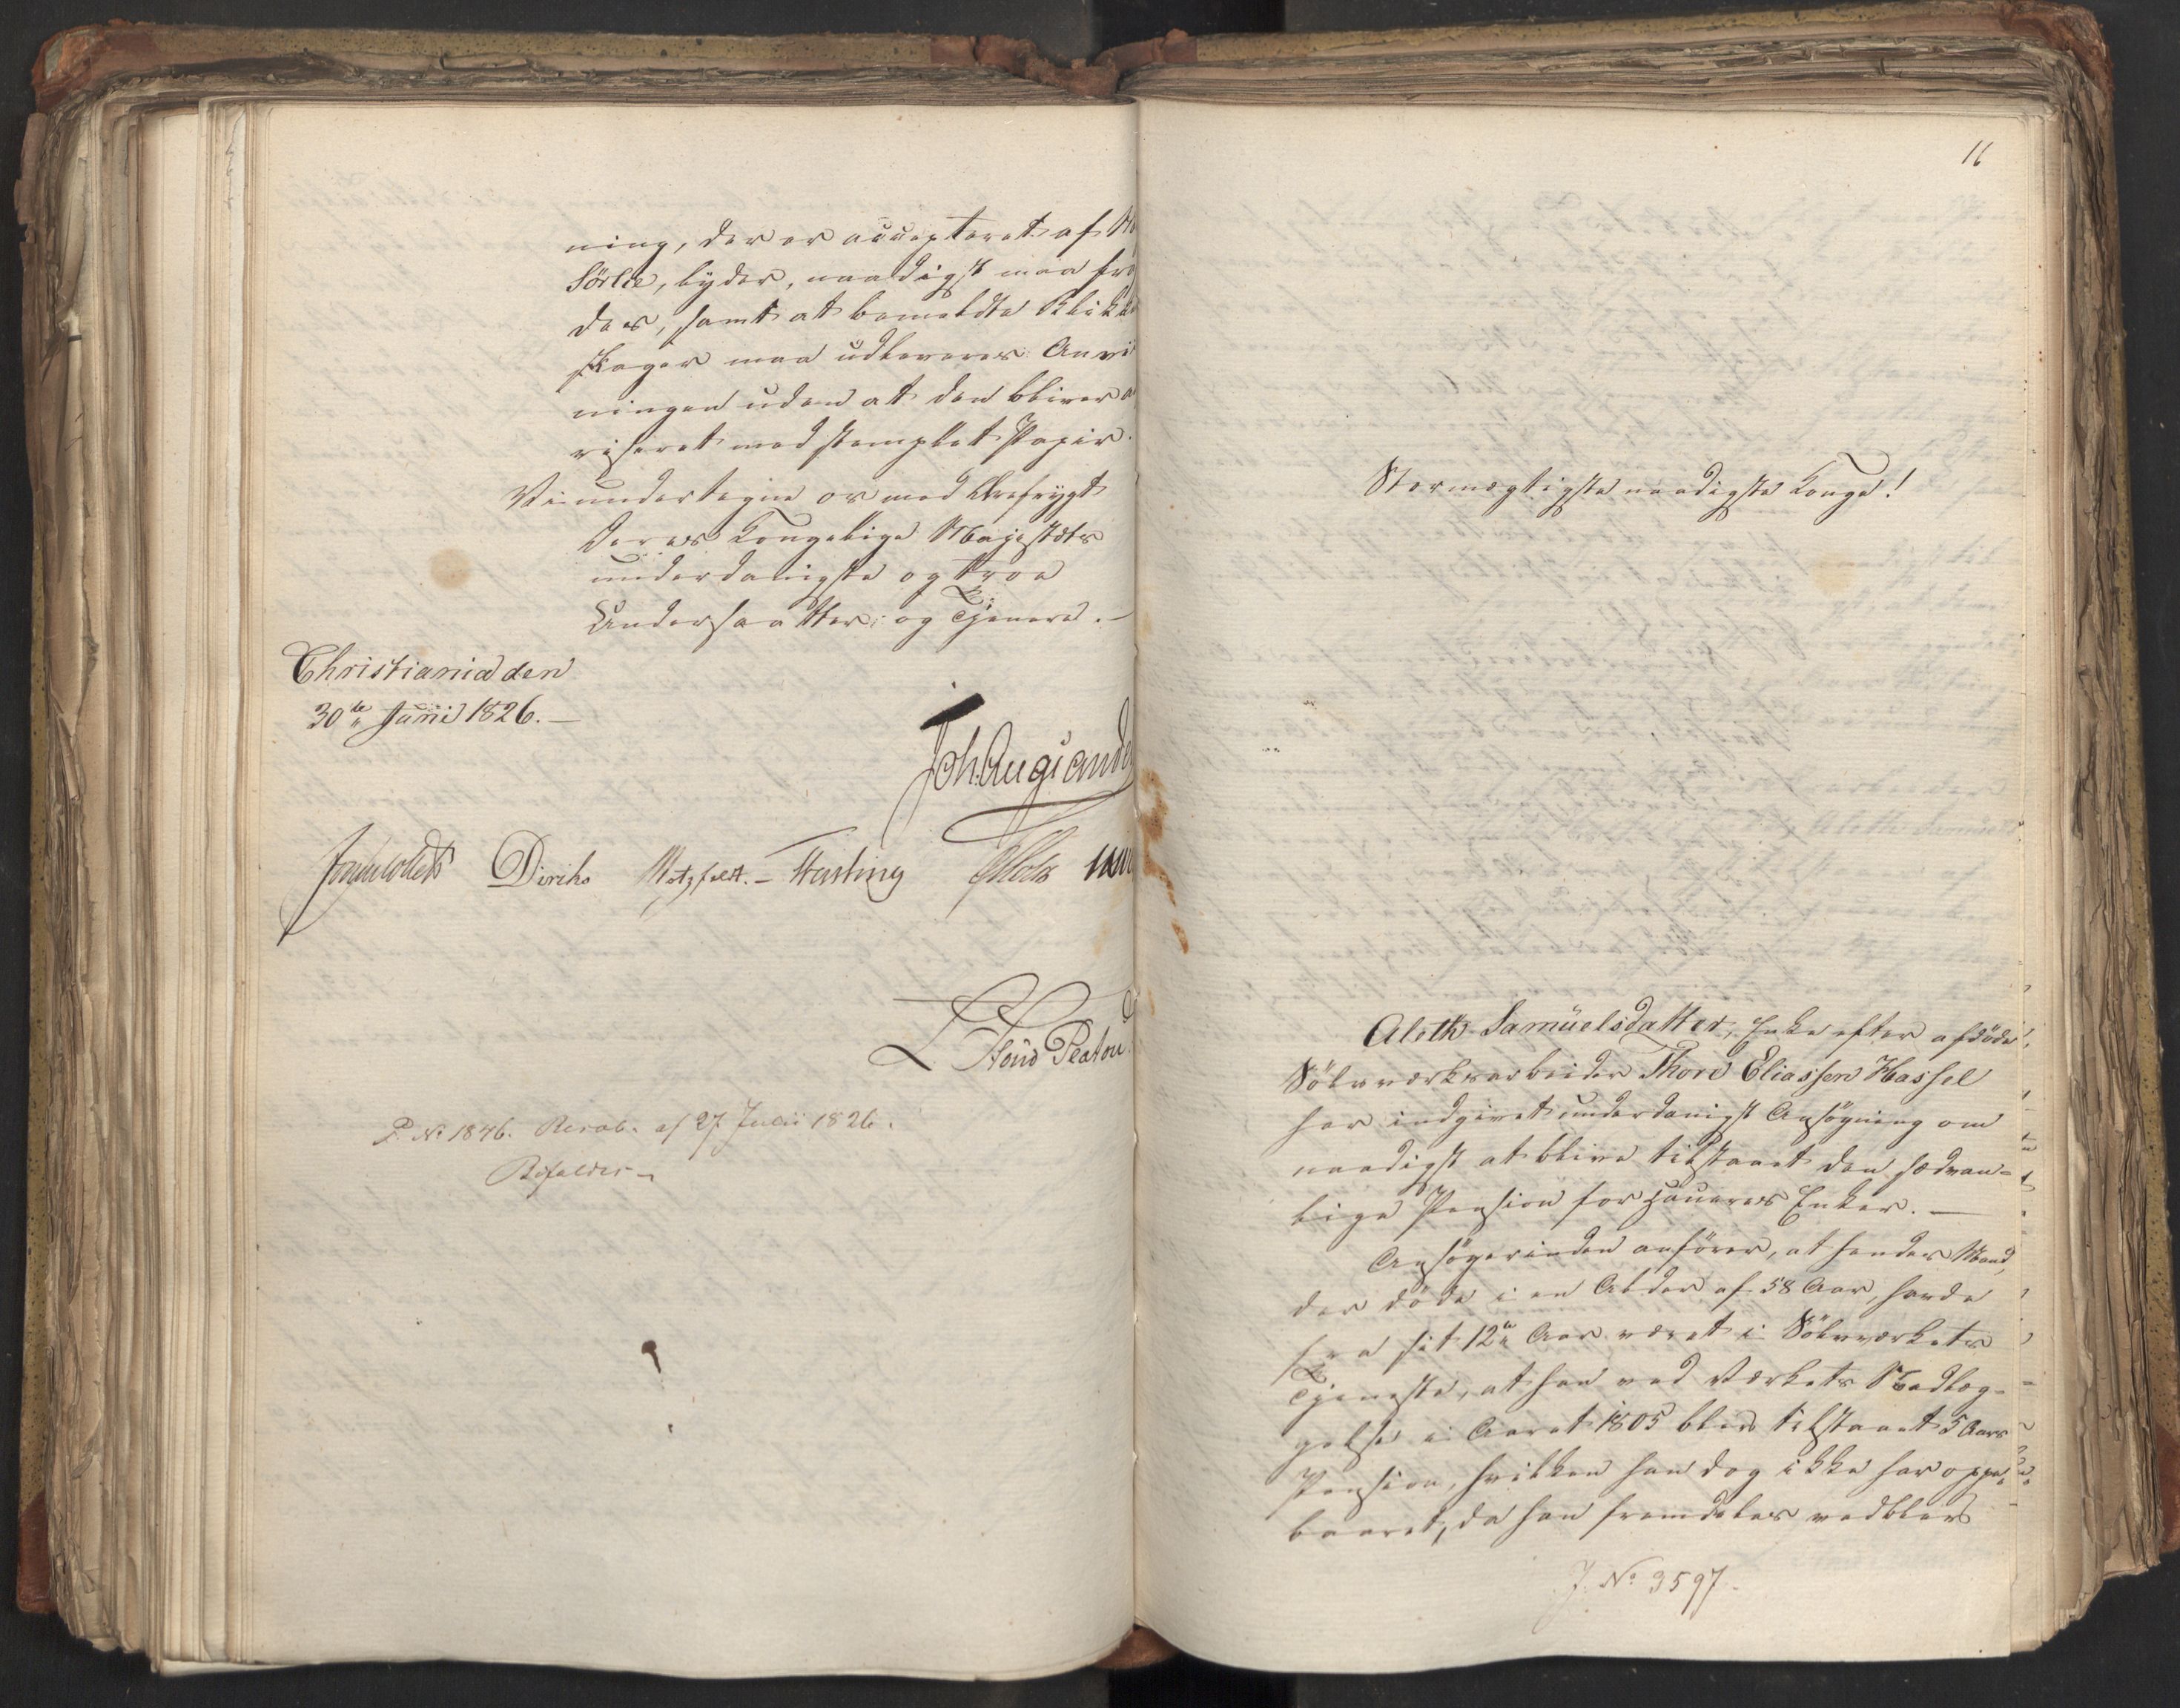 ning, der er accepteret af
Sörlie, lyder, naadigst maa
des, samt at bemeldte
skager maa udleveres Anvi
ningen uden at den bliver
riseret med stemplet Papir.
Vi undertegne os med Ærefrygt
Deres Kongelige Majestæts
underdanigste og troe
Undersaatter og Tjenere. —
Christiania den
30te Juni 1826. —
Joh. Aug. Sande
Jonas Collett Diriks Motzfeldt. — Fasting
L Stoud Platou
P. No 1846. Resol. af 27 Julii 1826.
Bifaldes —
11
Stormægtigste naadigste Konge!
Aleth Samuelsdatter, Enke efter afdöde
Sölvværksarbeider Thore Eliassen Hassel
har indgivet underdanigst Ansögning om
naadigst at blive tilstaaet den sædvan-
lige Pension for Haueres Enker. —
Ansögerinden anförer, at hendes Mand,
der döde i en Alder af 58 Aar, havde
fra sit 12te Aar været i Sölvværkets
Tjeneste, at han ved Værkets Nedlæg-
gelse i Aaret 1805 blev tilstaaet 5 Aars
Pension, hvilken han dog ikke har oppe-
baaret, da han fremdeles vedblev
J. No 3597.